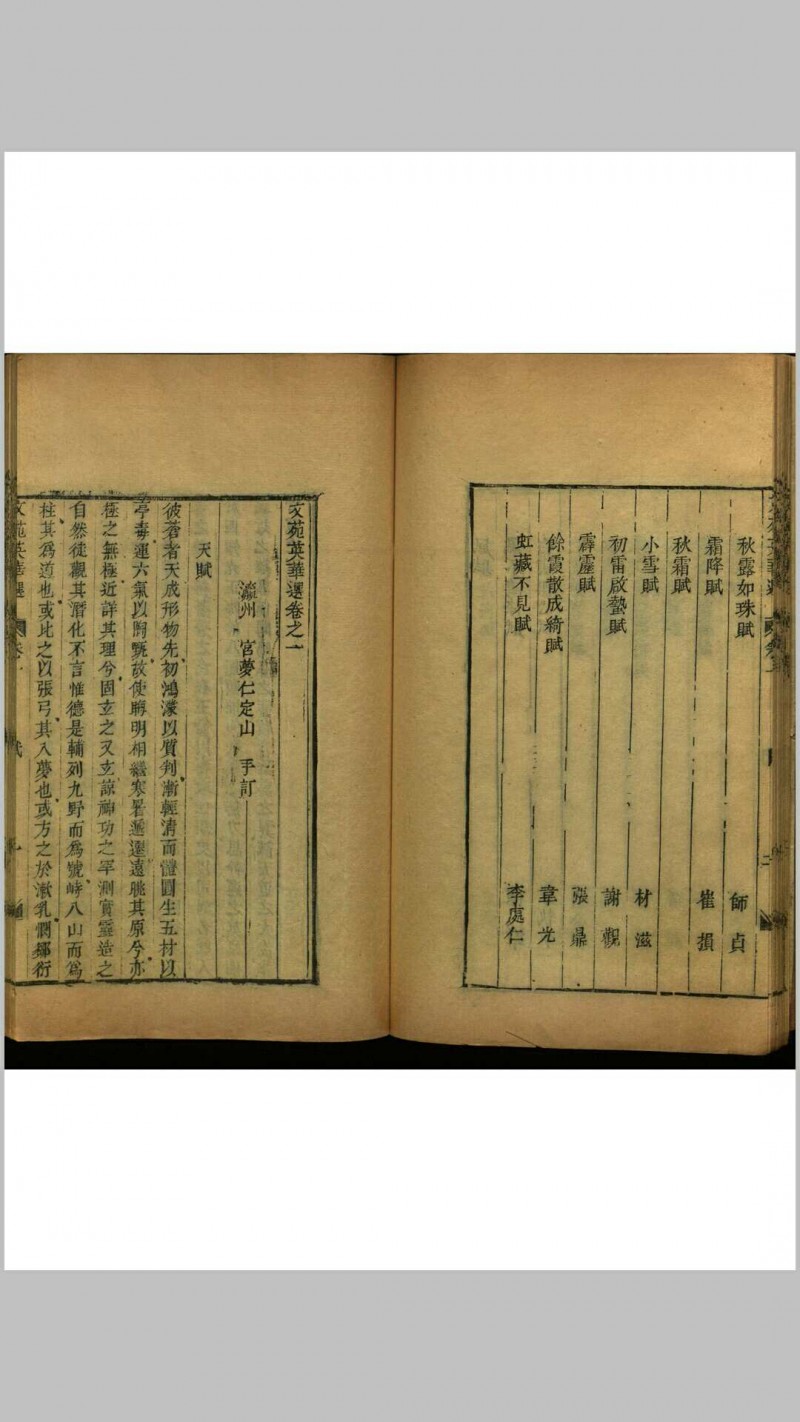 秋露如珠賦 師貞
霜降賦 崔損
秋霜賦
小雪賦 林滋
初雷啟蟄賦 謝觀
霹靂賦 張鼎
餘霞散成綺賦 韋充
虹藏不見賦 李處仁
文苑英華選卷之一
瀛州 宮夢仁定山 手訂
天賦
彼蒼者天成形物先初鴻濛以質判漸輕清而體圓生五材以
亭毒運六氣以陶甄故使晦明相繼寒暑遞遷遠眺其原兮亦
極之無極近詳其理兮固玄之又玄諒神功之罕測實靈造之
自然徒觀其潛化不言惟德是輔列九野而為號峙八山而為
柱其為道也或比之以張弓其入夢也或方之於漱乳惆鄒衍
文苑英華選